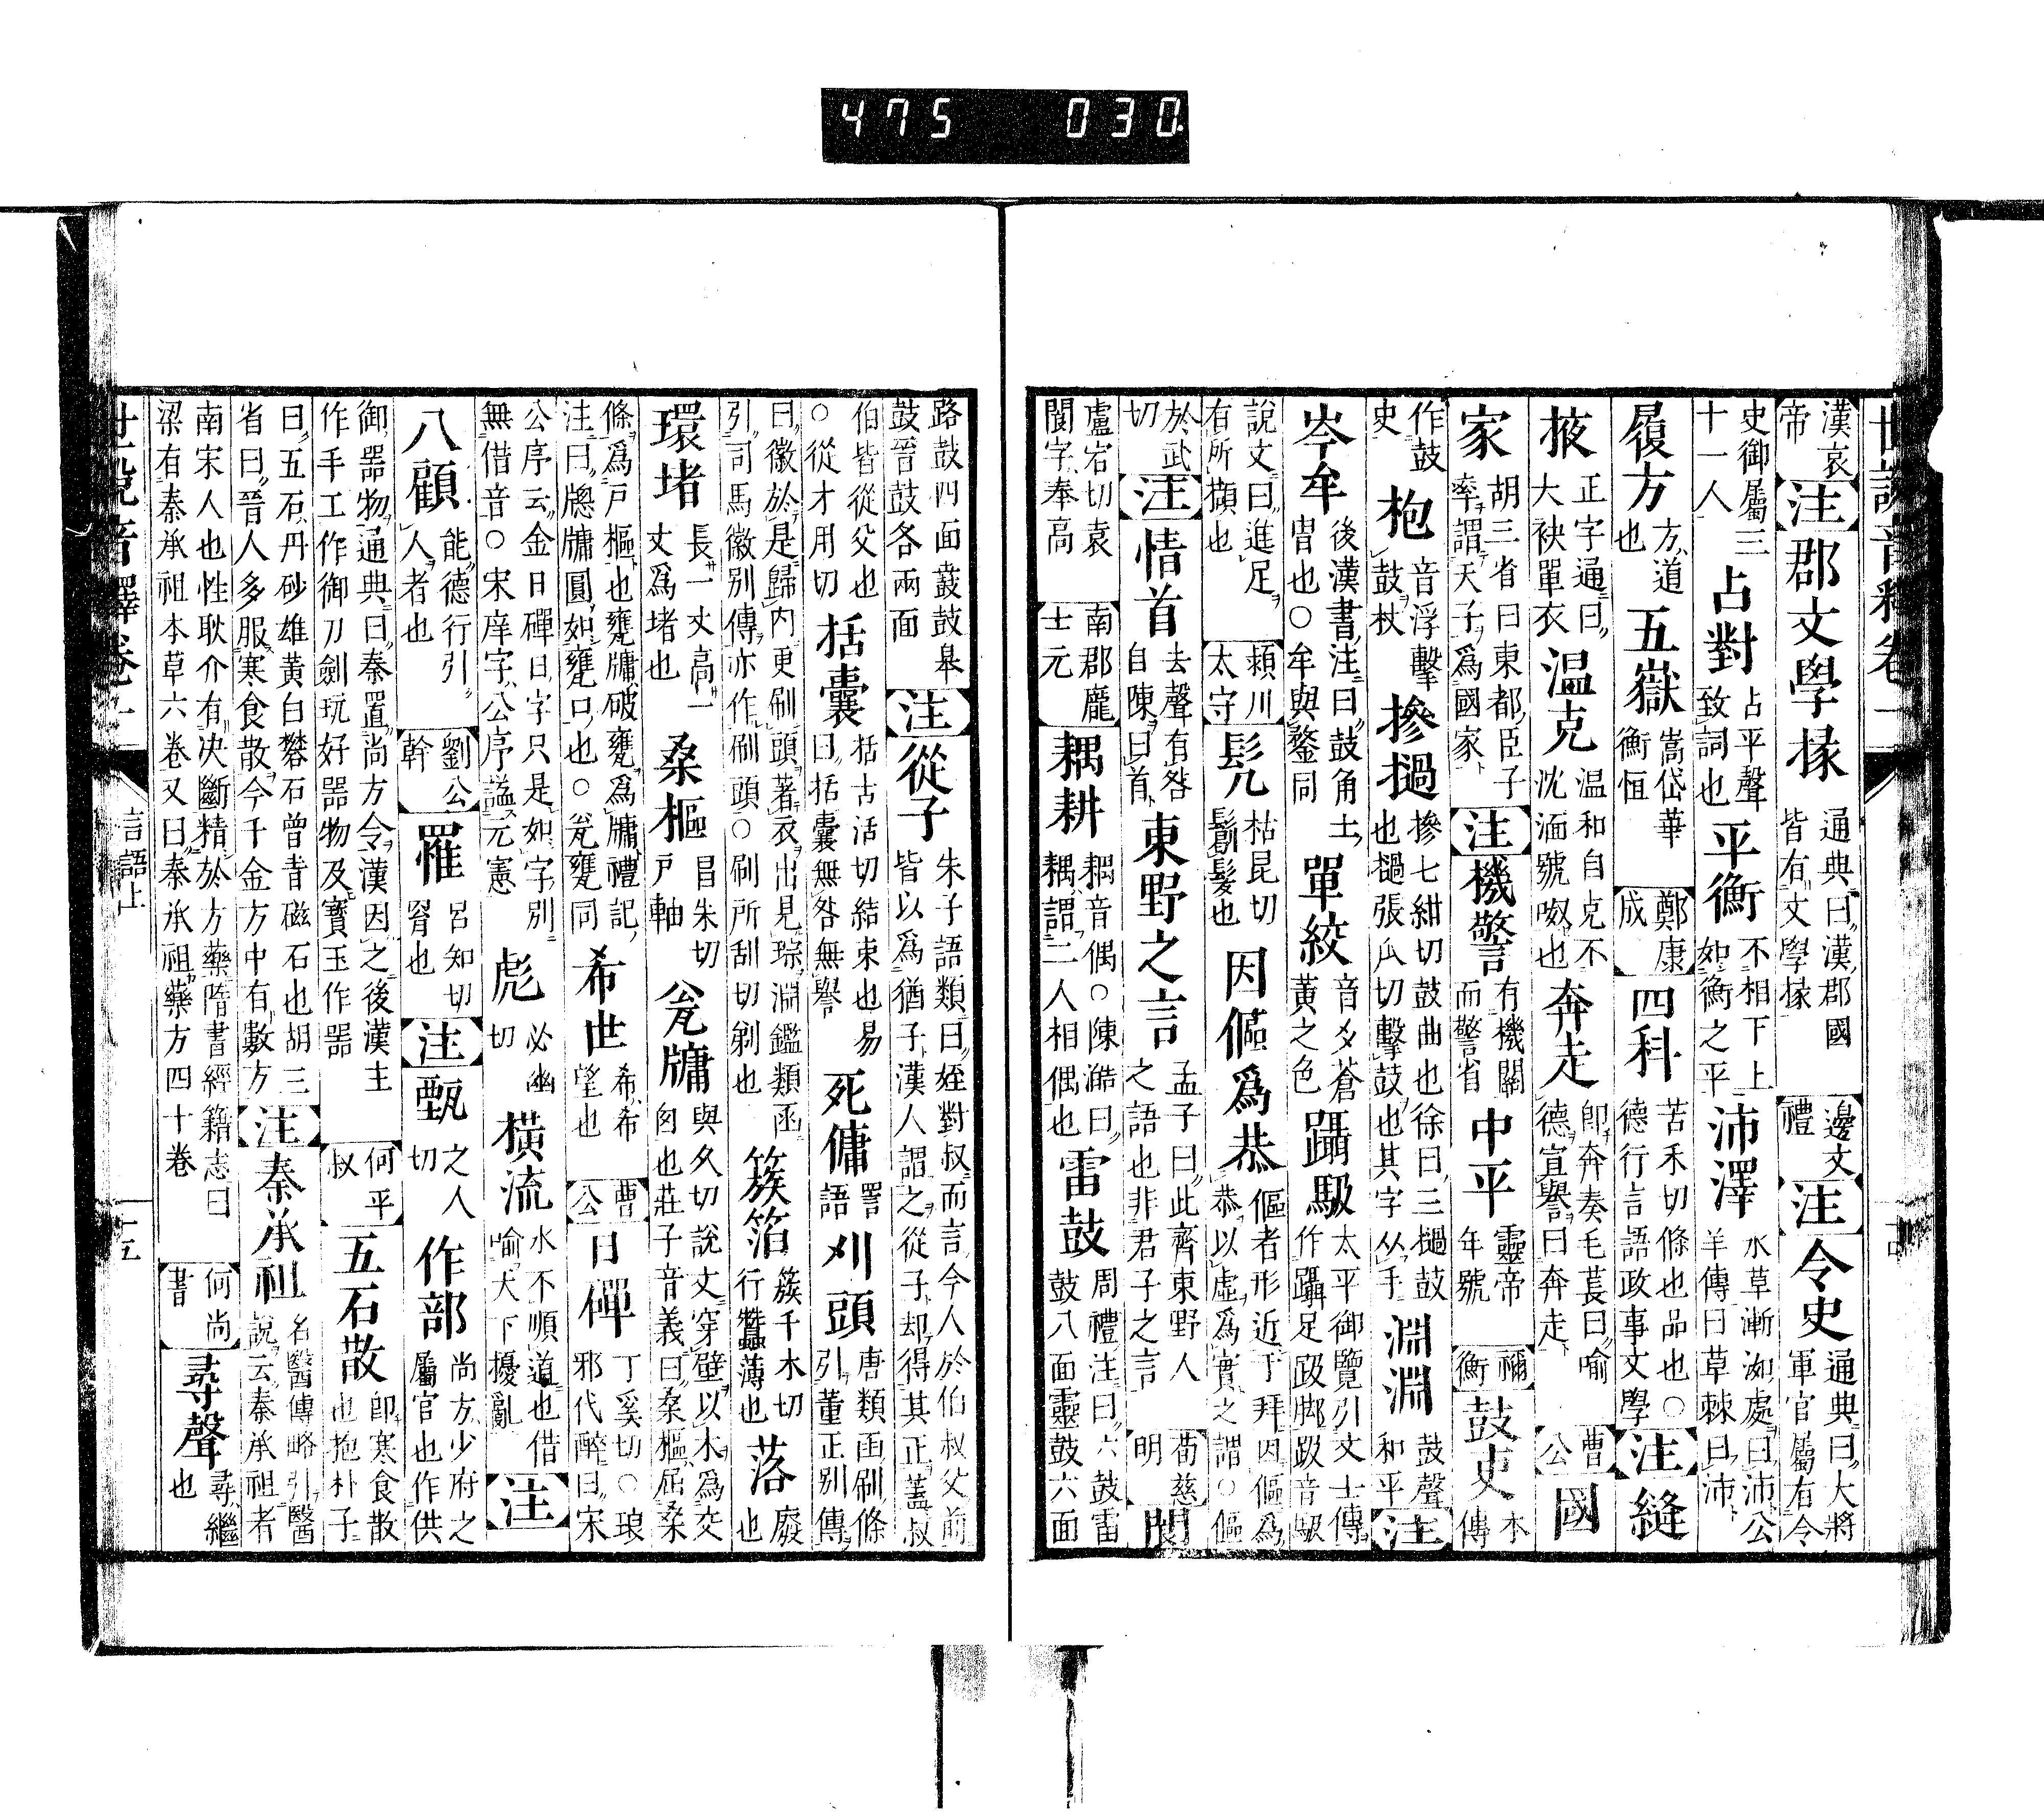 475 030
世說音釋卷一
漢哀帝 注 郡文學掾 通典曰漢郡國皆有文學掾 邊文禮 注 令史 通典曰大將軍官屬有令
史御屬三十一人 占對 占平聲致詞也 平衡 不相下上如衡之平 沛澤 水草漸洳處曰沛公羊傳曰草棘曰沛
履方 方道也 五嶽 嵩岱華衡恒 鄭康成 四科 苦禾切條也品也○德行言語政事文學 注 縫
掖 正字通曰大袂單衣 温克 温和自克不沈湎號呶也 奔走 即奔奏毛萇曰喻德宣譽曰奔走 曹公 國
家 胡三省曰東都臣子率謂天子爲國家 注 機警 有機關而警省 中平 靈帝年號 禰衡 鼓吏 本傳
作鼓史 枹 音浮擊鼓杖 摻撾 摻七紺切鼓曲也徐曰三撾鼓也撾張瓜切擊鼓也其字从手 淵淵 鼓聲和平 注
岑牟 後漢書注曰鼓角士冑也○牟與鍪同 單絞 音爻蒼黃之色 躡馺 太平御覽引文士傳作躡足趿脚趿音馺
說文曰進足有所擷也 潁川太守 髡 枯昆切鬄髮也 因傴爲恭 傴者形近于拜因傴爲恭以虛爲實之謂○傴
於武切 注 情首 去聲有咎自陳曰首 東野之言 孟子曰此齊東野人之語也非君子之言 荀慈明 閬
盧宕切袁閬字奉高 南郡龐士元 耦耕 耦音偶○陳澔曰耦謂二人相偶也 雷鼓 周禮注曰六鼓雷鼓八面靈鼓六面
路鼓四面鼖鼓皋鼓晉鼓各兩面 注 從子 朱子語類曰姪對叔而言今人於伯叔父前皆以爲猶子漢人謂之從子却得其正蓋叔
伯皆從父也○從才用切 括囊 括古活切結束也易曰括囊無咎無譽 死傭 詈語 刈頭 唐類函刷條引董正别傳
曰徽於是歸內更刷頭著衣出見琮淵鑑類函引司馬徽别傳亦作刷頭○刷所刮切剃也 簇箔 簇千木切行蠶薄也 落 廢也
環堵 長一丈高一丈爲堵也 桑樞 昌朱切戶軸 瓮牖 與久切說文穿壁以木爲交囱也莊子音義曰桑樞屈桑
條爲戶樞也甕牖破甕爲牖禮記注曰牕牖圓如甕口也○瓮甕同 希世 希希望也 曹公 日磾 丁奚切○琅邪代醉曰宋
公序云金日磾日字只是如字别無借音○宋庠字公序謚元憲 彪 必幽切 橫流 水不順道也借喻天下擾亂 注
八顧 能德行引人者也 劉公幹 罹 呂知切罥也 注 甄 之人切 作部 尚方少府之屬官也作供
御器物通典曰秦置尚方令漢因之後漢主作手工作御刀劍玩好器物及寶玉作器 何平叔 五石散 即寒食散也抱朴子
曰五石丹砂雄黃白礬石曾青磁石也胡三省曰晉人多服寒食散今千金方中有數方 注 秦承祖 名醫傳略引醫說云秦承祖者
南宋人也性耿介有决斷精於方藥隋書經籍志曰梁有秦承祖本草六卷又曰秦承祖藥方四十卷 何尚書 尋聲 尋繼也
世說音釋卷一
言語上
十五